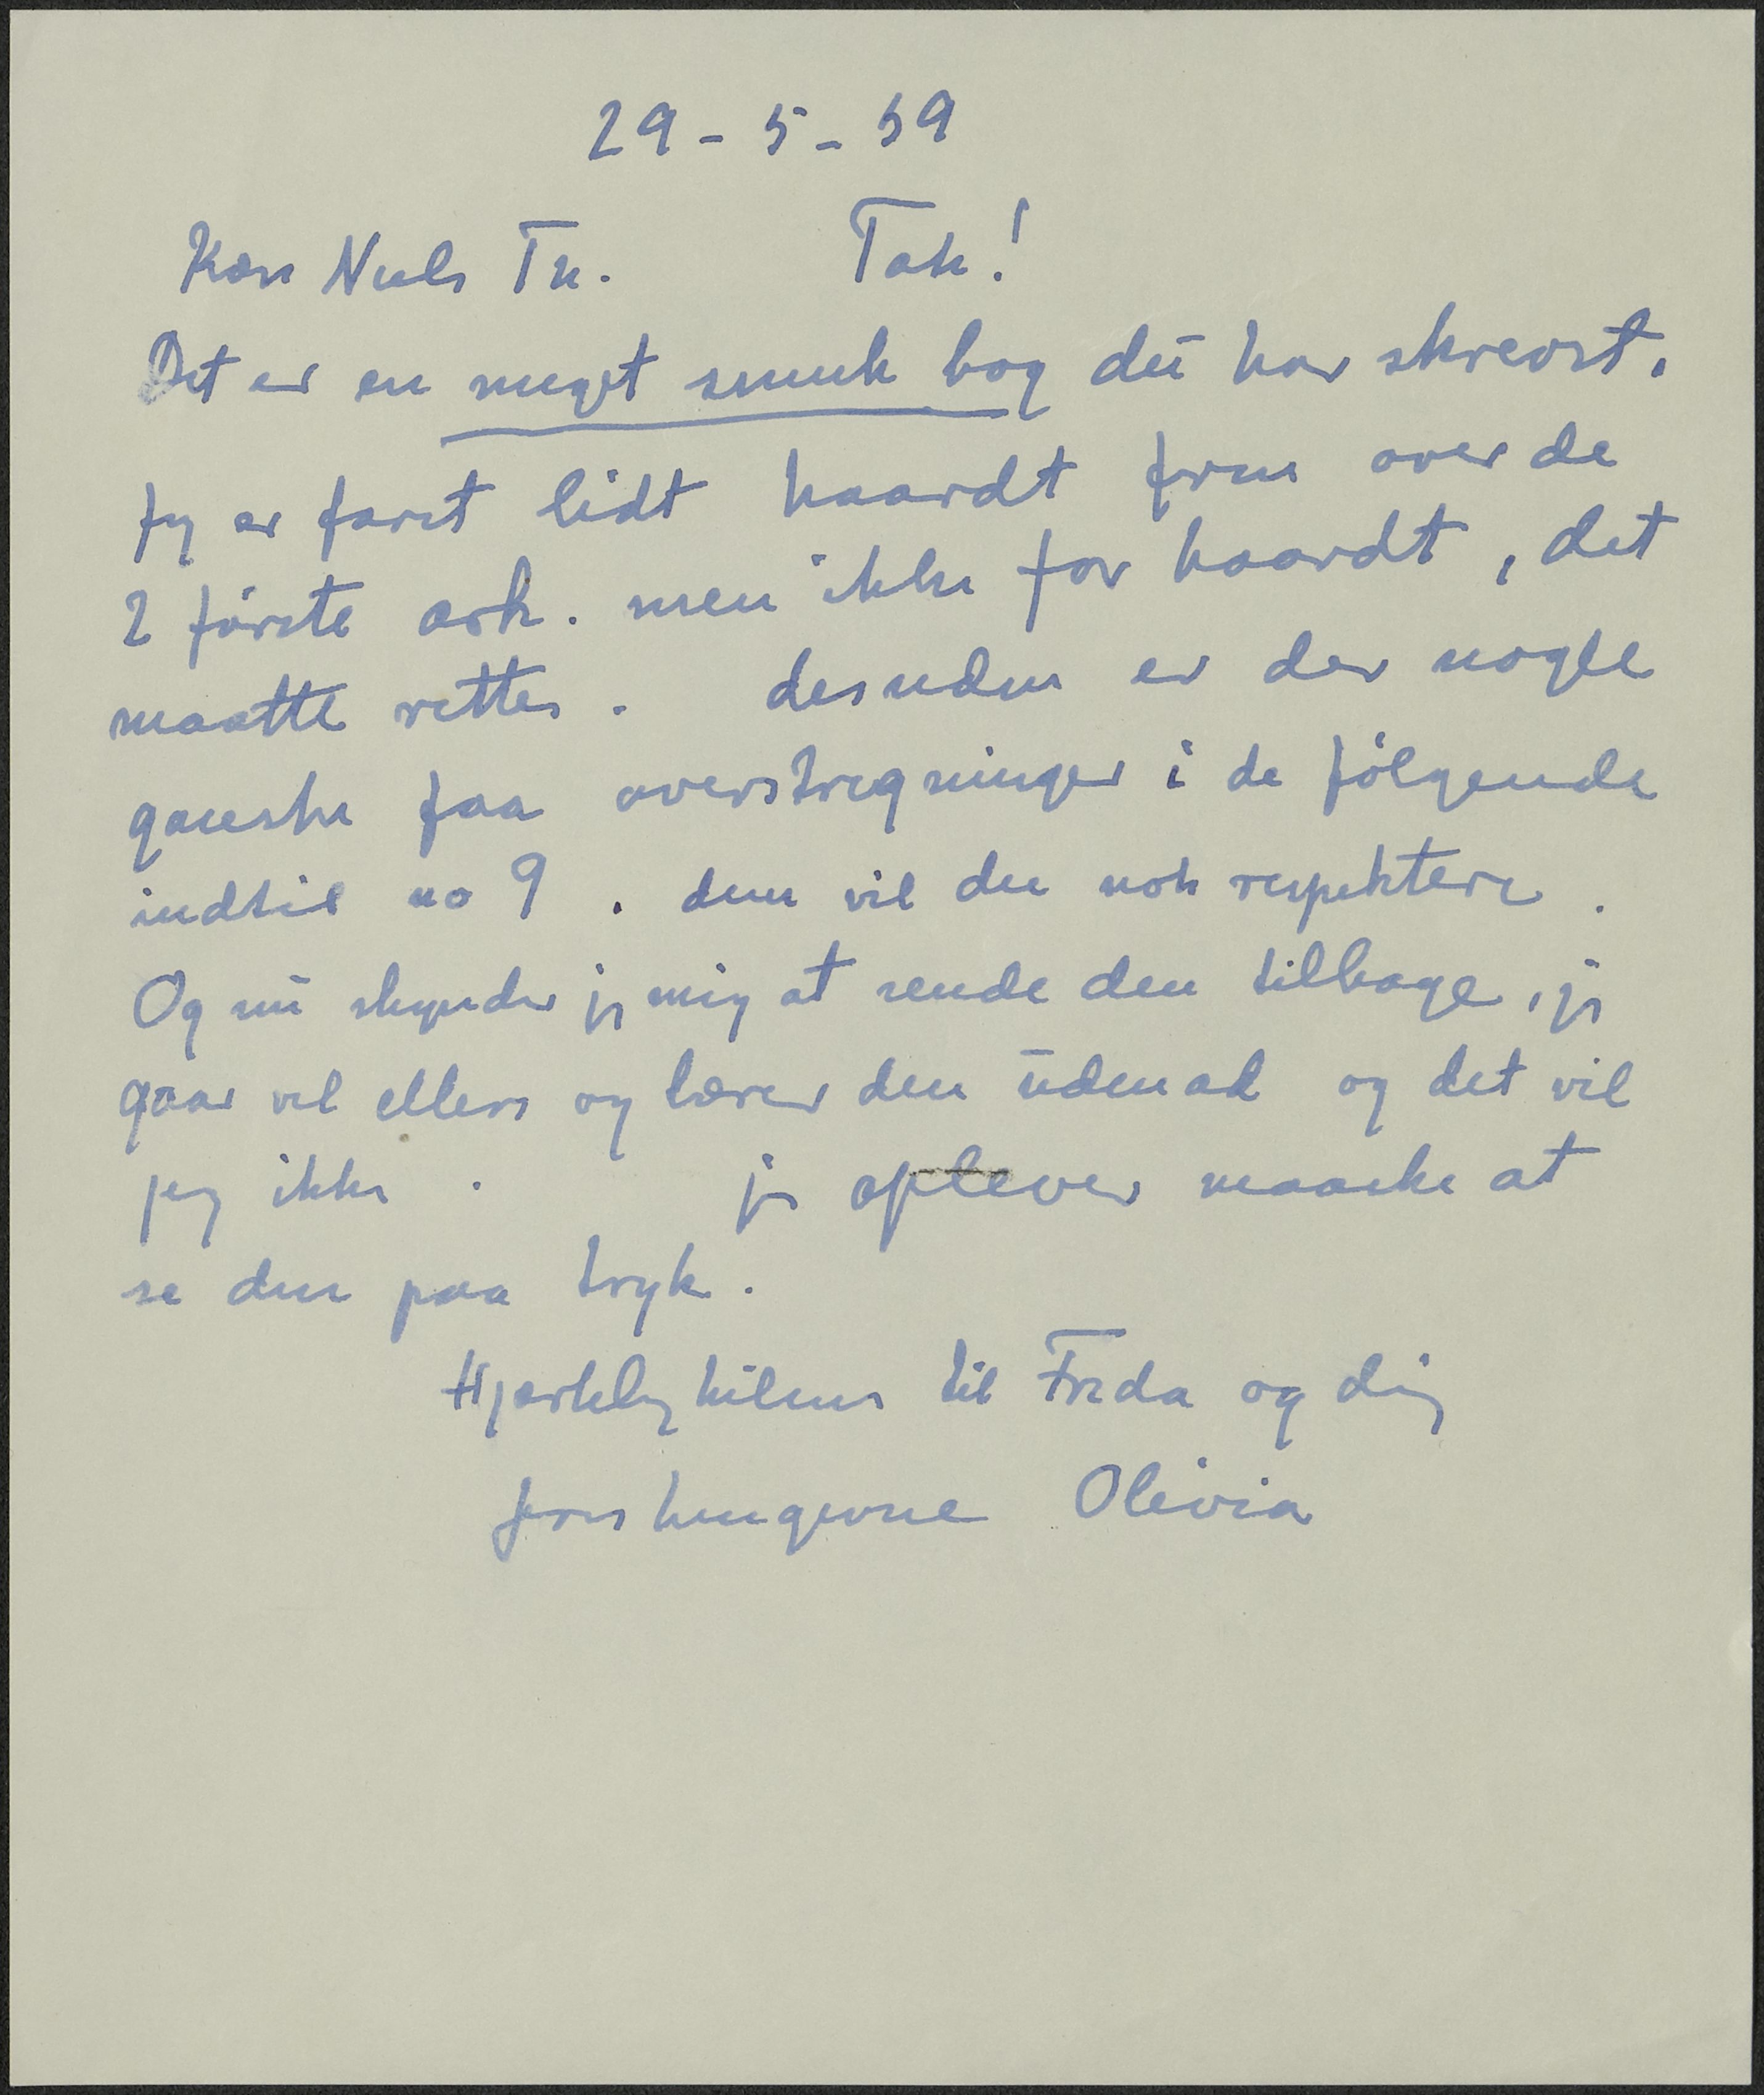 29-5-59
Kære Niels Th. Tak!
Det er en meget smuk bog du har skrevet.
Jeg er faret lidt haardt frem over de
2 første ark. men ikke for haardt, det
maatte rettes. desuden er der nogle
ganske faa overstregninger i de følgende
indtil no 9. dem vil du nok respektere.
Og nu skynder jeg mig at sende den tilbage, jeg
gaar vel ellers og lærer den udenad og det vil
jeg ikke. jeg oplever maaske at
se den paa tryk.
Hjertelig hilsen til Freda og dig
Olivia